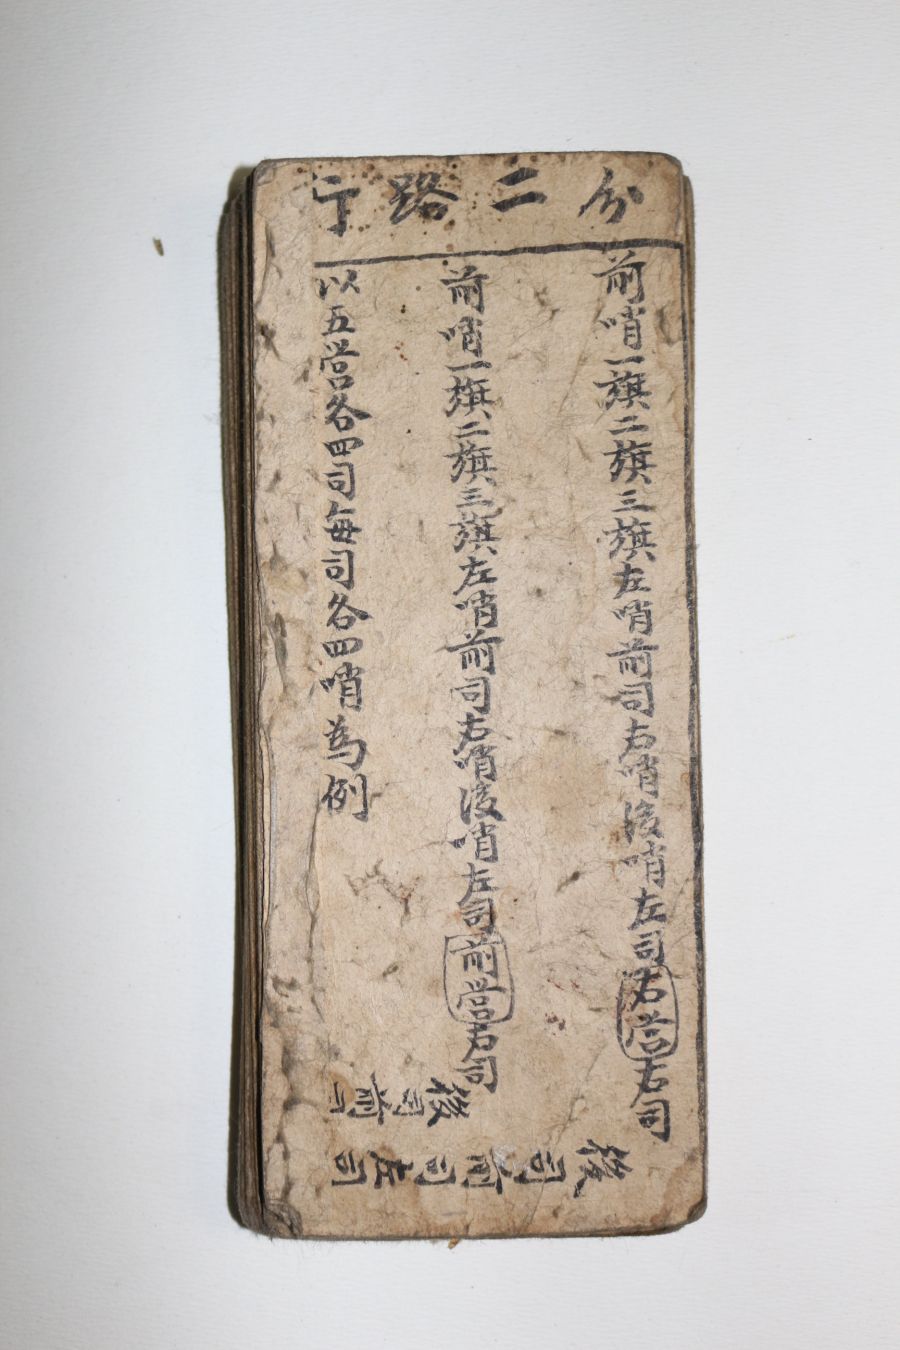 分二路行
前哨一旗二旗三旗左哨前司右哨後哨左司右營右司
前哨一旗二旗三旗左哨前司右哨後哨左司前營右司
以五營各四司每司各四哨為例
後司前司
後司前司左司